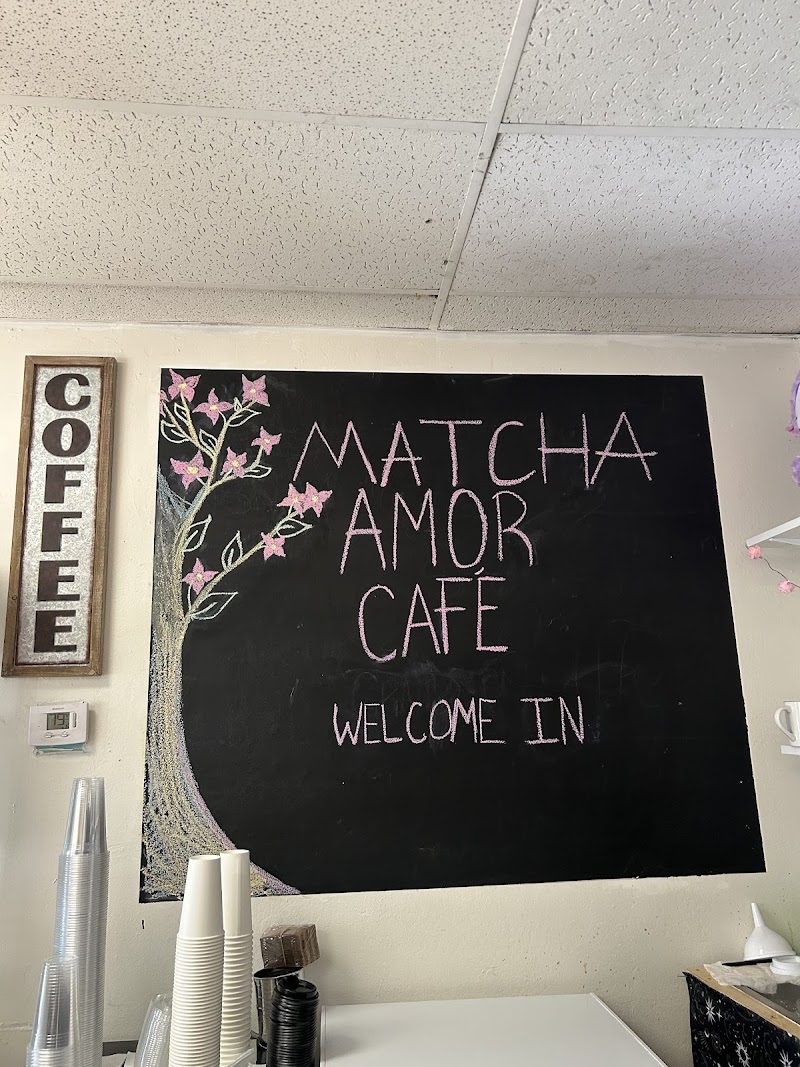 COFFEE
MATCHA
AMOR
CAFÉ
WELCOME IN